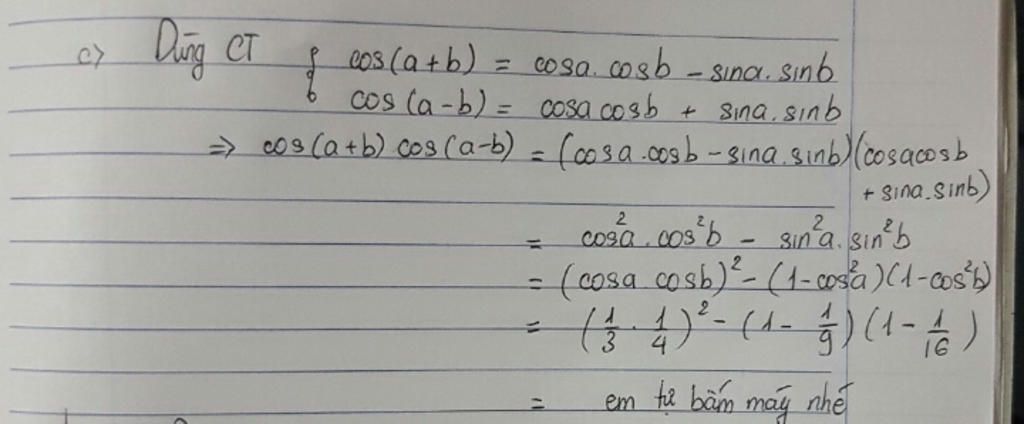 c) Dùng CT { cos(a+b) = cosa.cosb - sina.sinb
cos(a-b) = cosa cosb + sina.sinb
⇒ cos(a+b) cos(a-b) = (cosa.cosb - sina.sinb)(cosacosb
+ sina.sinb)
= cos²a.cos²b - sin²a.sin²b
= (cosa cosb)² - (1-cos²a)(1-cos²b)
= (1/3 · 1/4)² - (1 - 1/9)(1 - 1/16)
= em tự bấm máy nhé